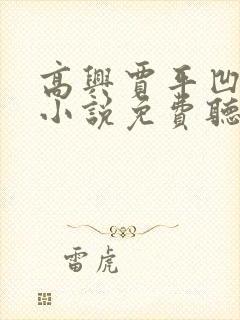 高興賈平凹
小說免費聽
雷虎